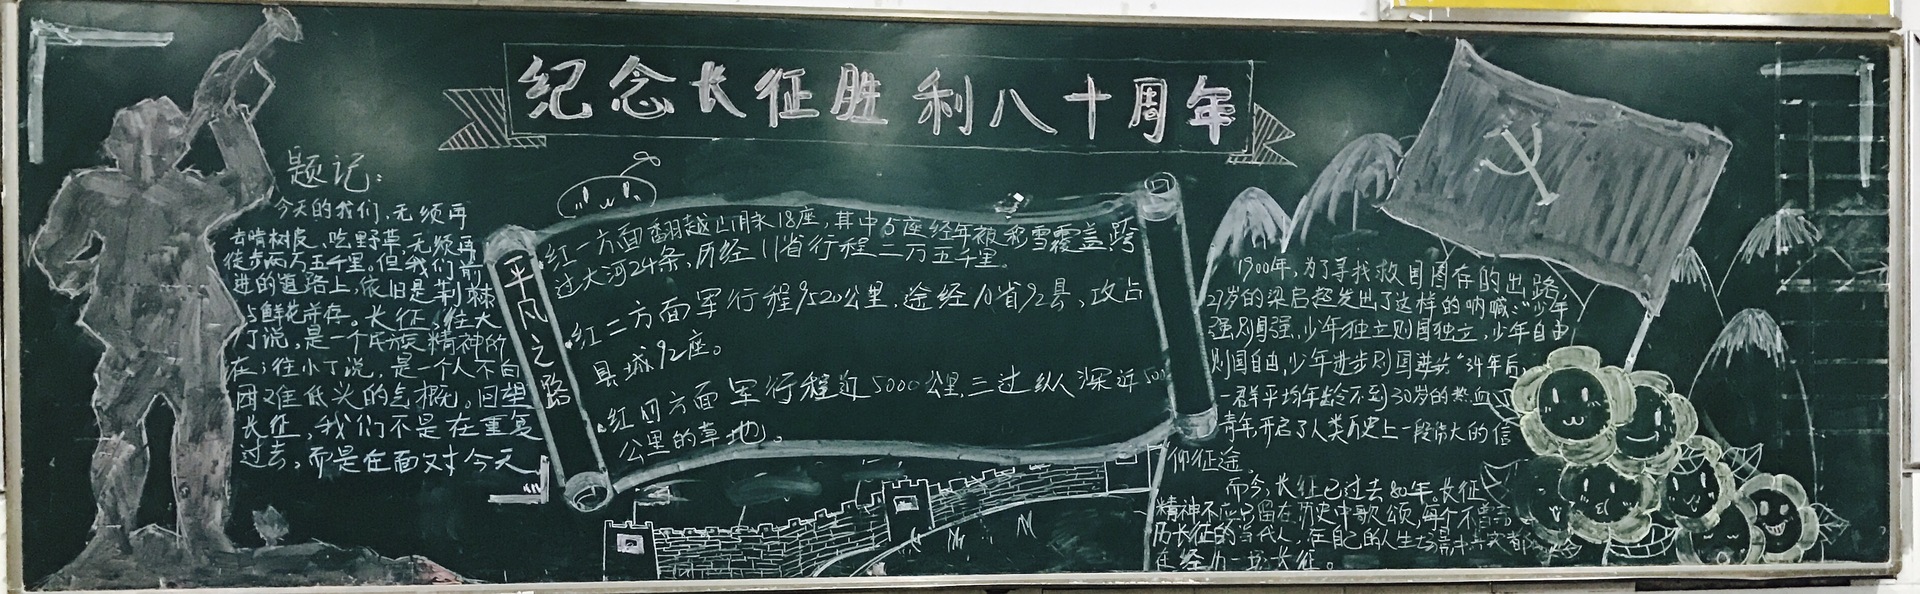 纪念长征胜利八十周年
题记:
今天的我们,无须再
去啃树皮、吃野草,无须再
徒步两万五千里。但我们前
进的道路上,依旧是荆棘
与鲜花并存。长征,往大
了说,是一个民族精神的
在;往小了说,是一个人不向
困难低头的气概。回望
长征,我们不是在重复
过去,而是在面对今天
平凡之路
红一方面翻越山脉18座,其中5座经年被冰雪覆盖,跨
过大河24条,历经11省行程二万五千里。
红二方面军行程9520公里,途经10省92县,攻占
县城92座。
红四方面军行程近5000公里,三过纵深近500
公里的草地。
1900年,为了寻找救国图存的出路,
27岁的梁启超发出了这样的呐喊:"少年
强则国强,少年独立则国独立,少年自由
则国自由,少年进步则国进步"34年后,
一群平均年龄不到30岁的热血
青年开启了人类历史上一段伟大的信
仰征途。
而今,长征已过去80年。长征
精神不应只留在历史中歌颂,每个不曾
历长征的当代人,在自己的人生
在经历一场长征。